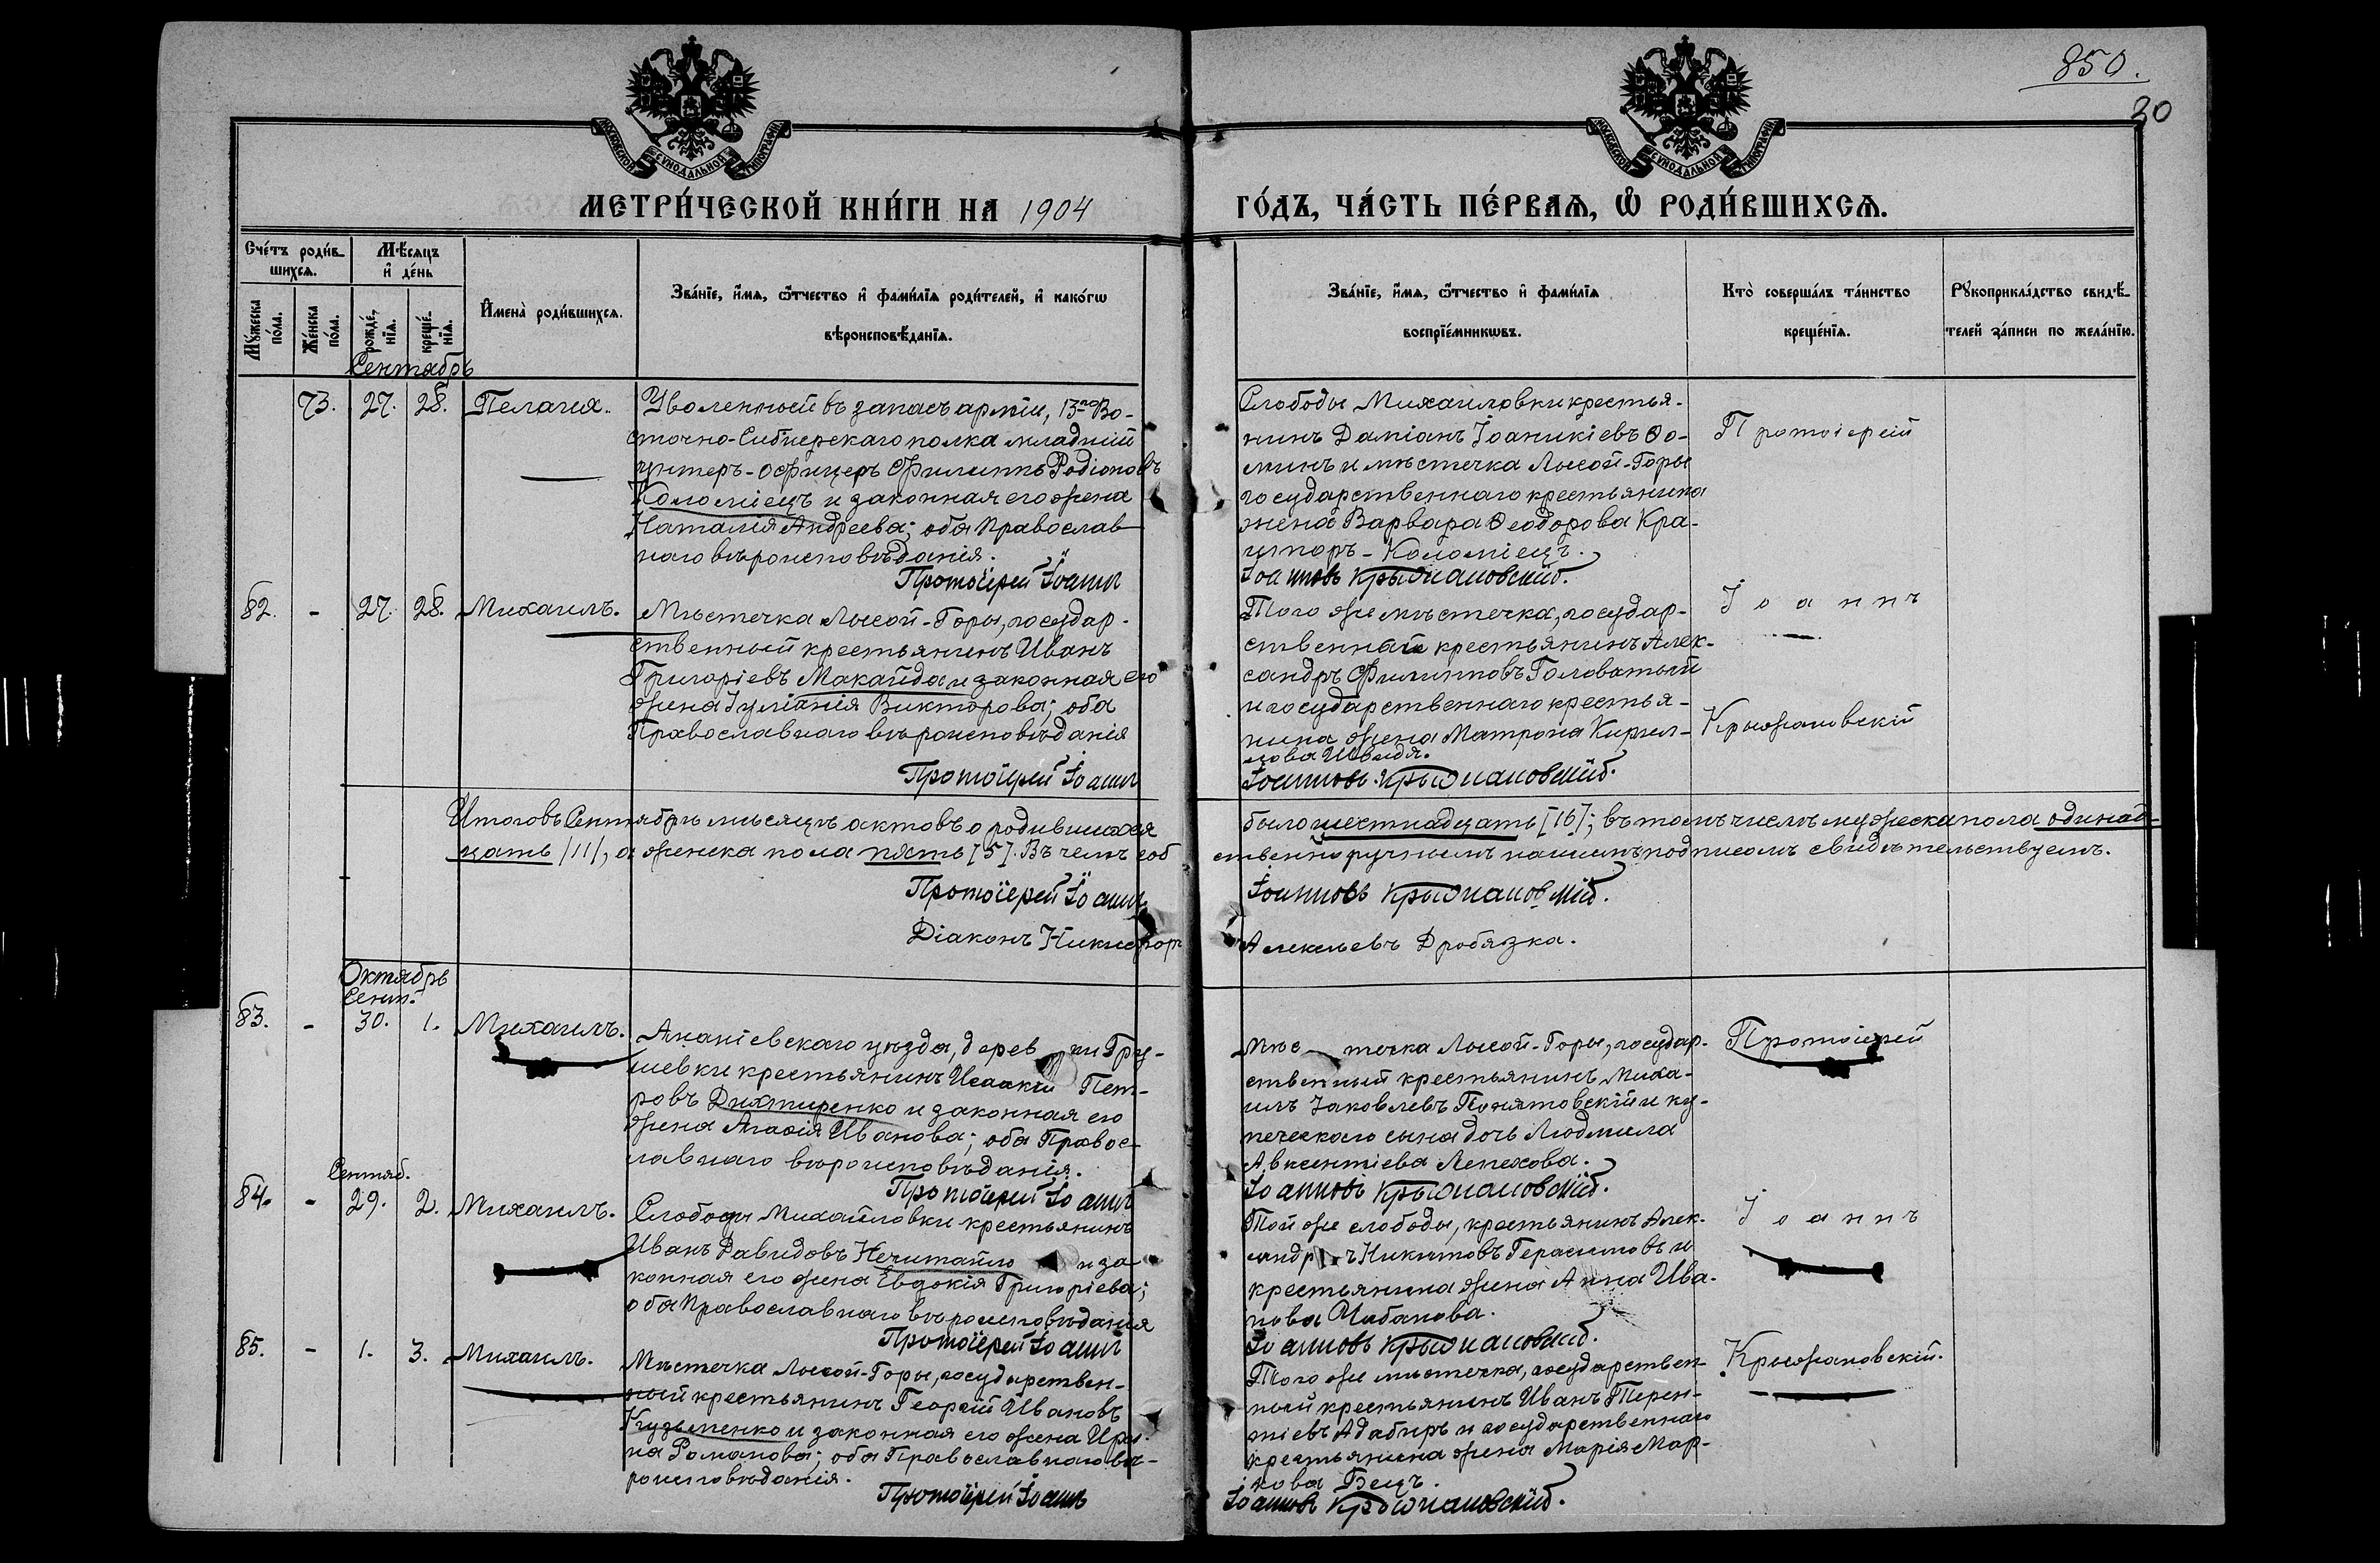 850.
30
МОСКОВСКОЙ СѴНОДАЛЬНОЙ ТИПОГРАФІИ
МОСКОВСКОЙ СѴНОДАЛЬНОЙ ТИПОГРАФІИ
МЕТРИ́ЧЕСКОЙ КНИ́ГИ НА 1904
ГО́ДЪ, ЧА́СТЬ ПЕ́РВАѦ, Ѡ҆ РОДИ́ВШИХСѦ.
Сче́тъ роди́в-
шихсѧ.
Мꙋ́жеска по́ла.
Же́нска по́ла.
Мѣ́сѧцъ
и҆ де́нь
рожде́-
нїѧ.
креще́-
нїѧ.
И҆мена̀ роди́вшихсѧ.
Зва́нїе, и҆́мѧ, ѻ҆́тчество и҆ фами́лїѧ роди́телей, и҆ како́гѡ
вѣроисповѣ́данїѧ.
Зва́нїе, и҆́мѧ, ѻ҆́тчество и҆ фами́лїѧ
воспрїе́мникѡвъ.
Кто̀ соверша́лъ та́инство
креще́нїѧ.
Рꙋкоприкла́дство свидѣ́-
телей за́писи по жела́нїю.
Сентябрь
73. 27. 28. Пелагія.
Уволенный въ запасъ арміи, 13го Во-
сточно-Сибирскаго полка младшій
унтеръ-офицеръ Филиппъ Родіоновъ
Коломіецъ и законная его жена
Наталія Андреева; оба Православ
наго вѣроисповѣданія.
Протоіерей Іоаннъ
Слободы Михайловки крестья-
нинъ Даміанъ Іоаникіевъ Ѳо-
минъ и мѣстечка Лысой-Горы
государственнаго крестьянина
жена Варвара Ѳеодорова Кра-
Коломіецъ.
Іоанновъ Крыжановскій.
Протоіерей
82. - 27. 28. Михаилъ.
Мѣстечка Лысой-Горы, государ-
ственный крестьянинъ Иванъ
Григоріевъ Макайда и законная его
жена Іуліанія Викторова; оба
Православнаго вѣроисповѣданія
Протоіерей Іоаннъ
Того же мѣстечка, государ-
ственный крестьянинъ Алек-
сандръ Филипповъ Головатый
и государственнаго крестья-
нина жена Матрона Кирил-
лова Швидя.
Іоанновъ Крыжановскій.
Іоаннъ
Крыжановскій
Итого въ Сентябрѣ мѣсяцѣ актовъ о родившихся
было шестнадцать [16]; въ томъ числѣ мужеска пола одинад-
цать /11/, а женска пола пять [5]. Въ чемъ соб
ственноручнымъ нашимъ подписомъ свидѣтельствуемъ.
Протоіерей Іоаннъ
Іоанновъ Крыжановскій.
Діаконъ Никифоръ
Алексѣевъ Дробязка.
Октябрь
Сент.
83. - 30. 1. Михаилъ.
Ананіевскаго уѣзда, деревни Гру-
шевки крестьянинъ Исаакій Пет-
ровъ Дихтиренко и законная его
жена Агафія Иванова; оба Правос-
лавнаго вѣроисповѣданія.
Протоіерей Іоаннъ
Мѣстечка Лысой-Горы, государ-
ственный крестьянинъ Миха-
илъ Іаковлевъ Понятовскій и ку-
печескаго сына дочь Людмила
Авксентіева Лепехова.
Іоанновъ Крыжановскій.
Протоіерей
Сентяб.
84. - 29. 2. Михаилъ.
Слободы Михайловки крестьянинъ
Иванъ Давидовъ Нечитайло и за
конная его жена Евдокія Григоріева;
оба Православнаго вѣроисповѣданія
Протоіерей Іоаннъ
Той же слободы, крестьянинъ Алек-
сандръ Никитовъ Герасимовъ и
крестьянина жена Анна Ива-
нова Чабанова.
Іоанновъ Крыжановскій.
Іоаннъ
85. - 1. 3. Михаилъ.
Мѣстечка Лысой-Горы, государствен-
ный крестьянинъ Георгій Ивановъ
Кузьменко и законная его жена Ири-
на Романова; оба Православнаго вѣ-
роисповѣданія.
Протоіерей Іоаннъ
Того же мѣстечка, государствен-
ный крестьянинъ Иванъ Терен-
тіевъ Адабиръ и государственнаго
крестьянина жена Марія Мар-
кова Бецъ.
Іоанновъ Крыжановскій.
Крыжановскій.